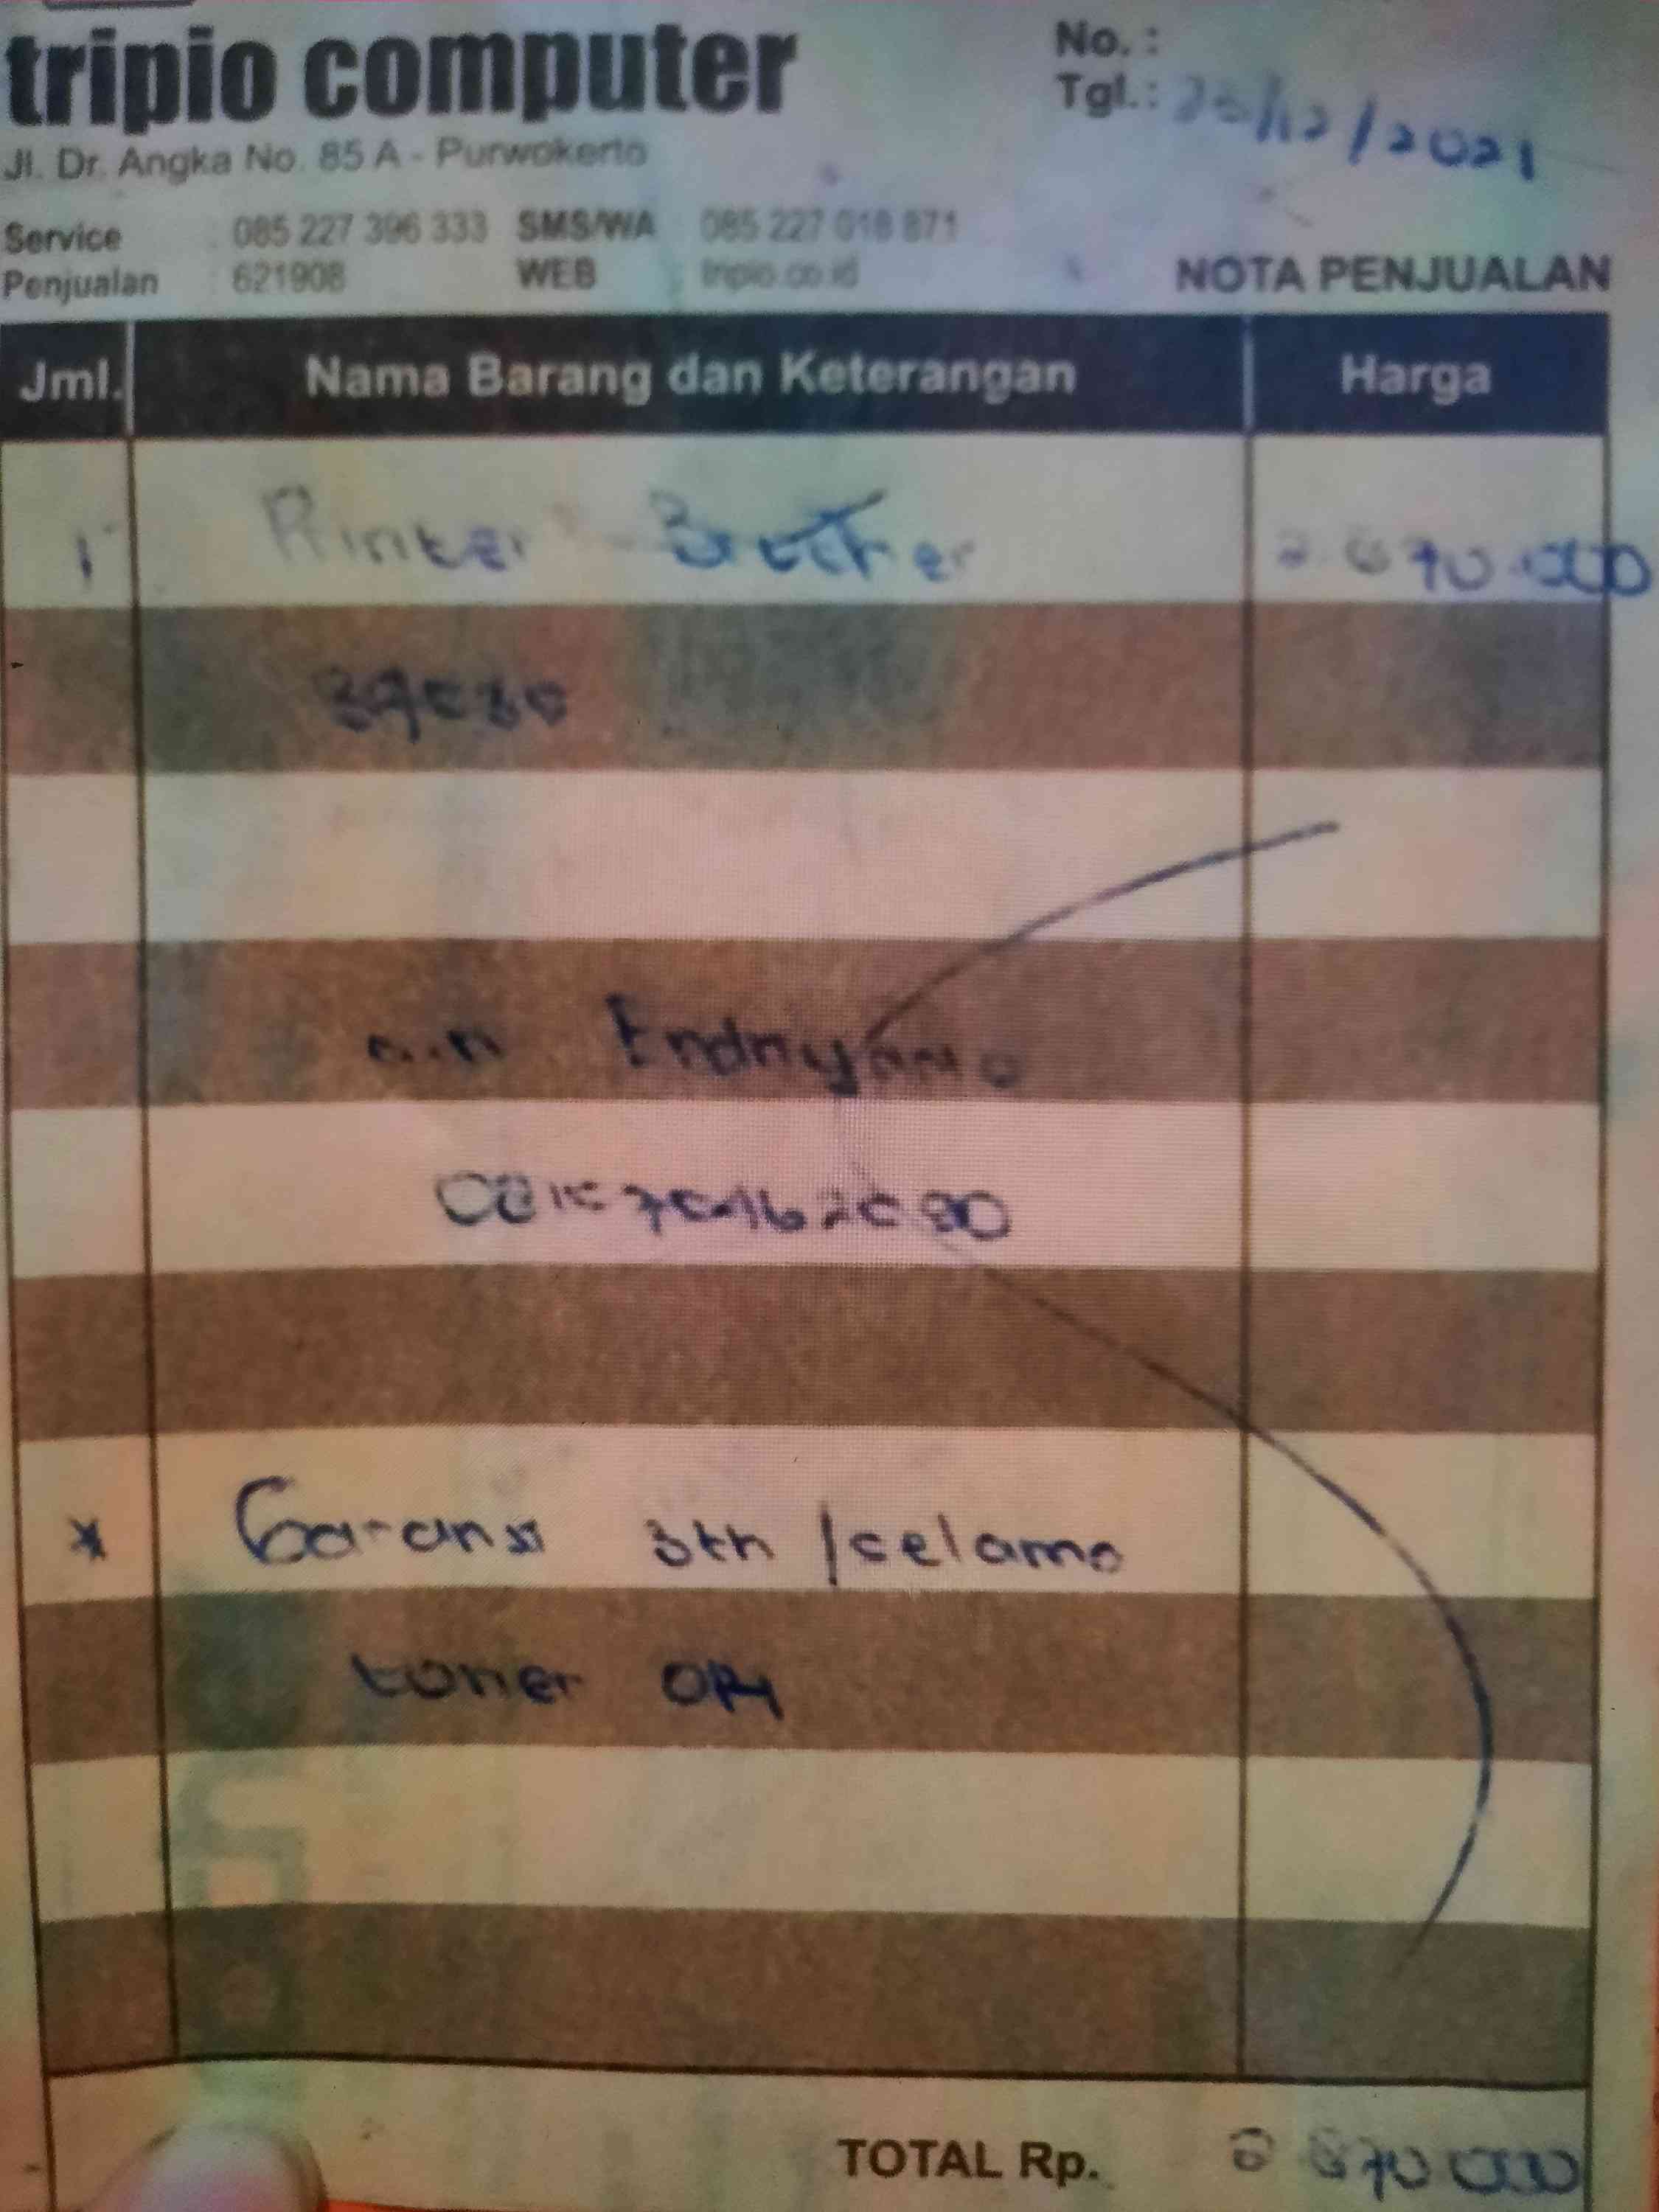 tripio computer
No. :
Tgl.: 23/12/2021
Jl. Dr. Angka No. 85 A - Purwokerto
Service : 085 227 396 333 SMS/WA : 085 227 018 871
Penjualan : 621908 WEB : tripio.co.id
NOTA PENJUALAN
Jml. Nama Barang dan Keterangan Harga
1 Printer Brother
a.n
* Garansi 3th / selama
toner ORI
TOTAL Rp.